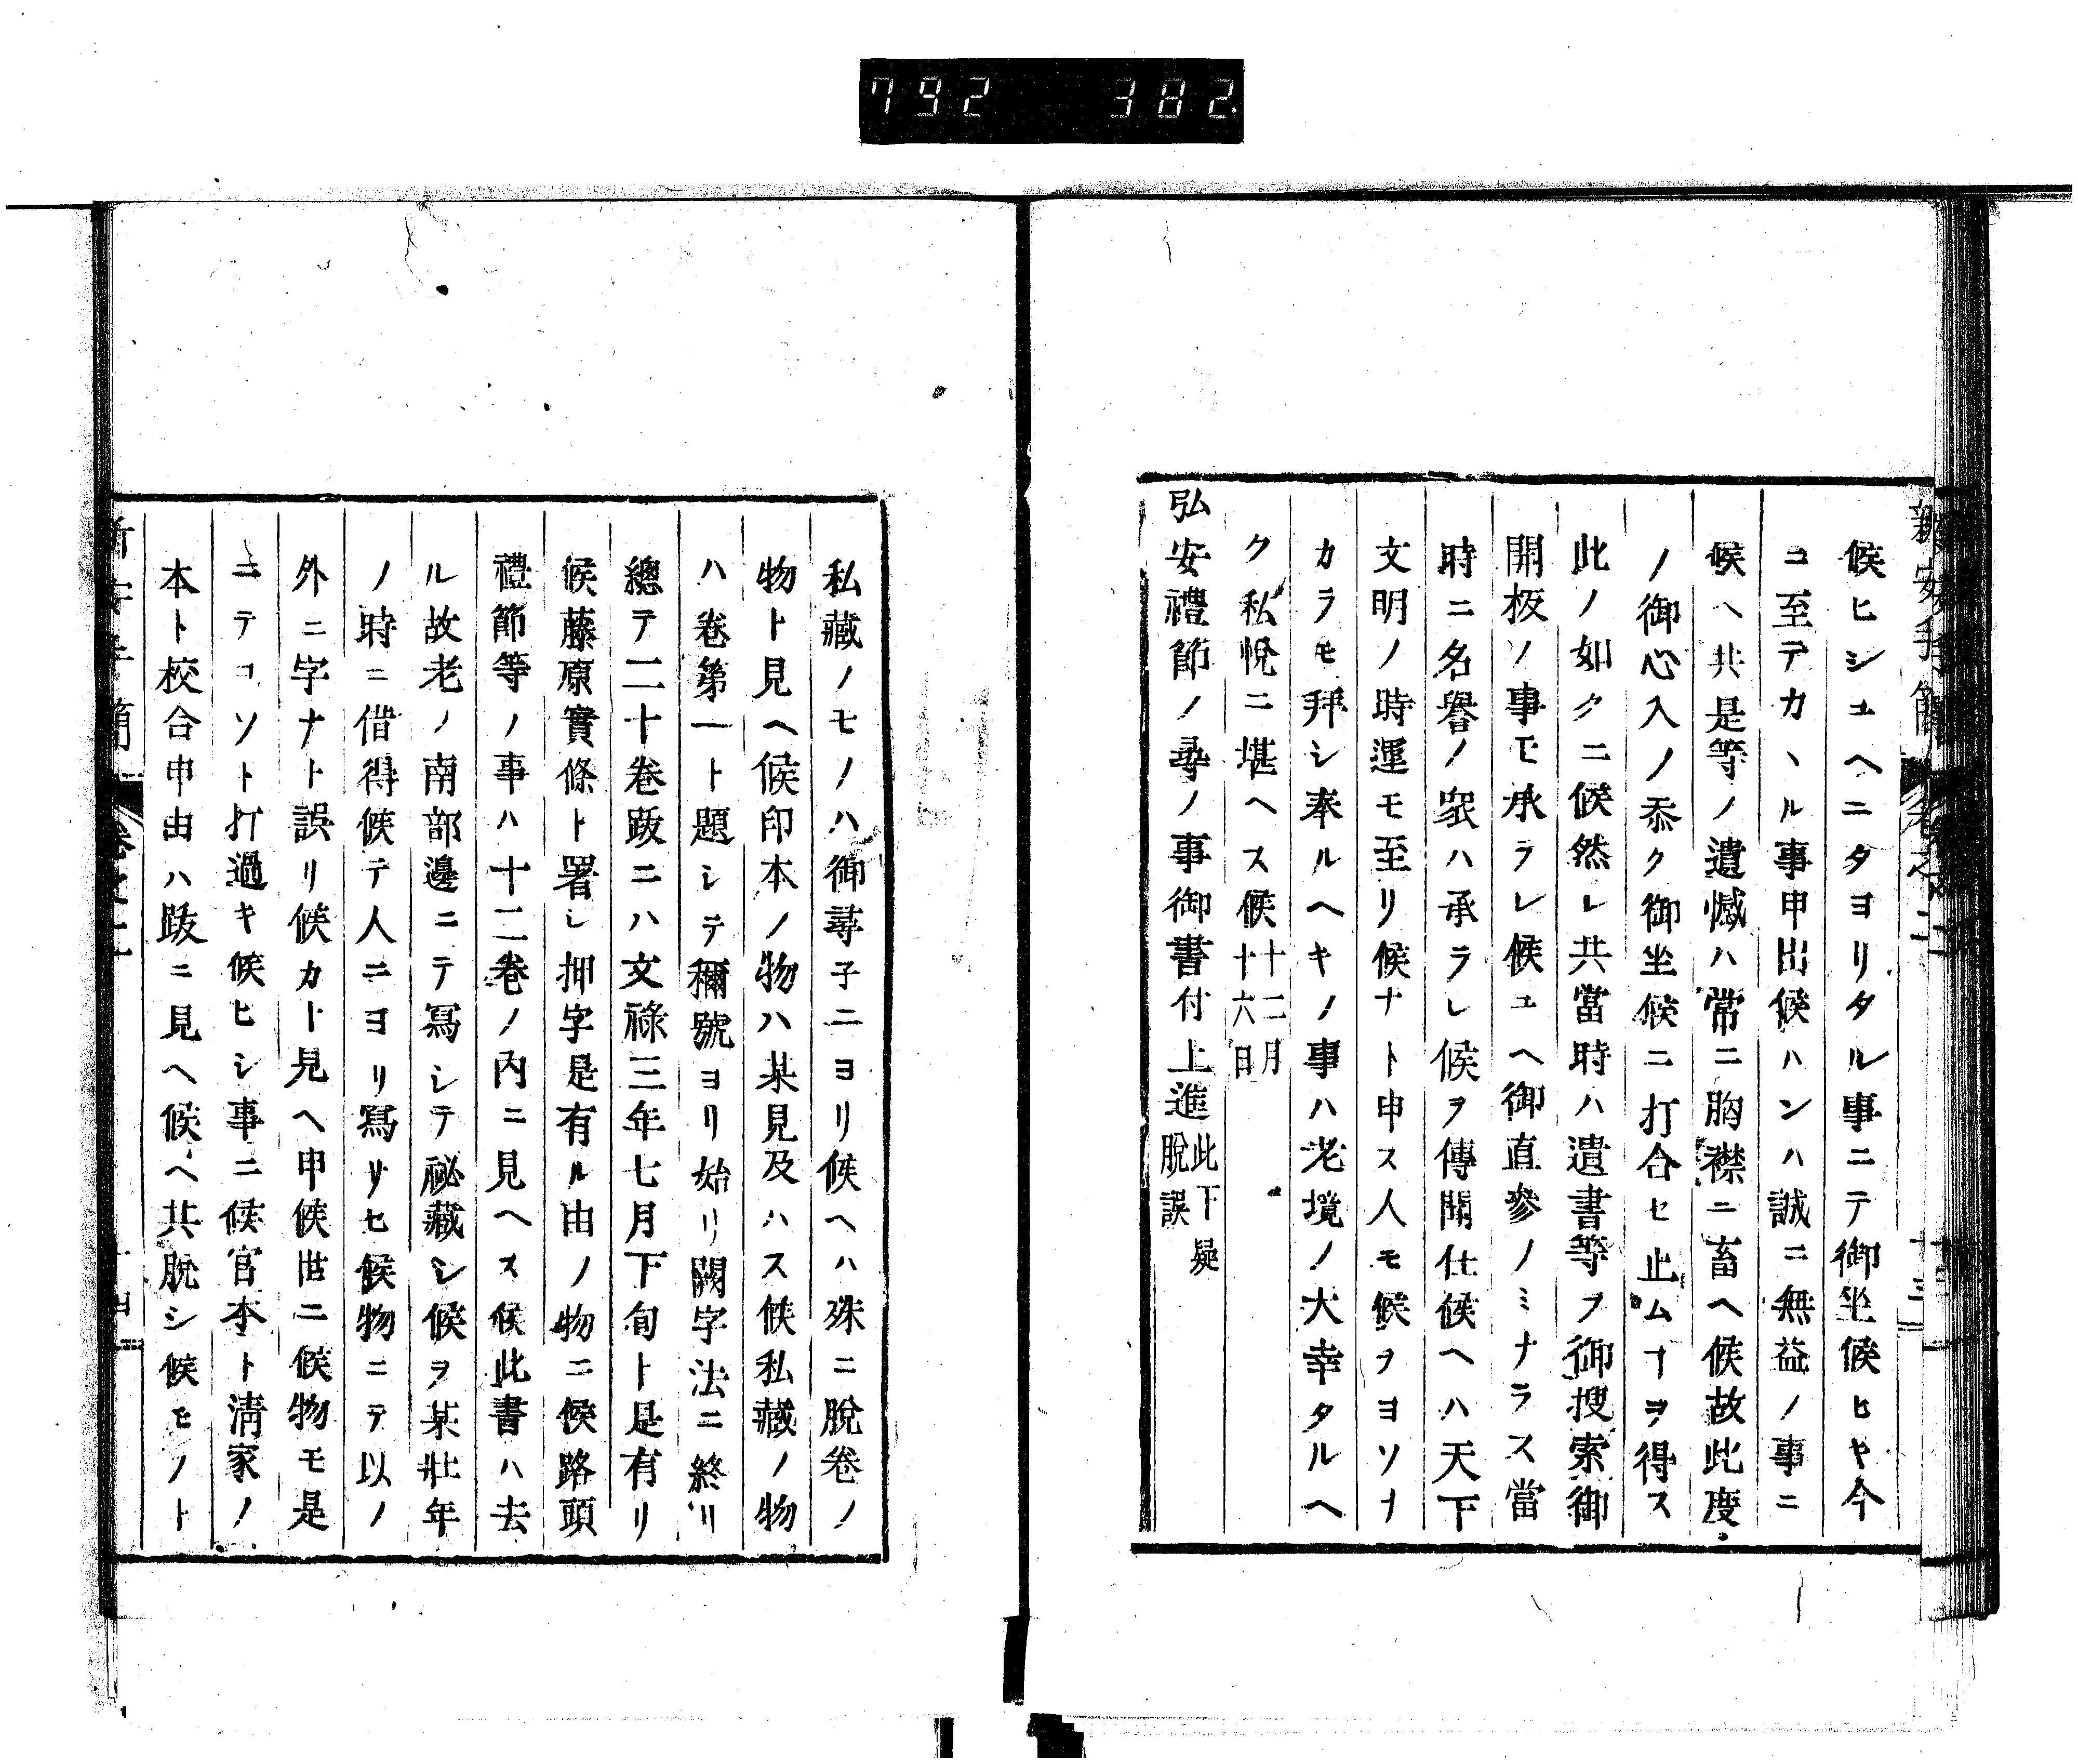 792 382
新安手簡 卷之二 廿三
候ヒシユヘニタヨリタル事ニテ御坐候ヒヤ今
コ至テカヽル事申出候ハンハ誠ニ無益ノ事ニ
候ヘ共是等ノ遺憾ハ常ニ胸襟ニ畜ヘ候故此度
ノ御心入ノ忝ク御坐候ニ打合セ止ムヿヲ得ス
此ノ如クニ候然レ共當時ハ遺書等ヲ御搜索御
開板ノ事モ承ラレ候ユヘ御直參ノミナラス當
時ニ名譽ノ衆ハ承ラレ候ヲ傳聞仕候ヘハ天下
文明ノ時運モ至リ候ナト申ス人モ候ヲヨソナ
カラモ拜シ奉ルヘキノ事ハ老境ノ大幸タルヘ
ク私悅ニ堪ヘス候十二月十六日
弘安禮節ノ尋ノ事御書付上進此下疑脫誤
私藏ノモノハ御尋子ニヨリ候ヘハ殊ニ脫卷ノ
物ト見ヘ候印本ノ物ハ某見及ハス候私藏ノ物
ハ卷第一ト題シテ稱號ヨリ始リ闕字法ニ終リ
總テ二十卷跋ニハ文祿三年七月下旬ト是有リ
候藤原實條ト署シ押字是有ル由ノ物ニ候路頭
禮節等ノ事ハ十二卷ノ內ニ見ヘス候此書ハ去
ル故老ノ南部邊ニテ寫シテ祕藏シ候ヲ某壯年
ノ時ニ借得候テ人ニヨリ寫サヒ候物ニテ以ノ
外ニ字ナト誤リ候カト見ヘ申候世ニ候物モ是
ニテコソト打過キ候ヒシ事ニ候官本ト淸家ノ
本ト校合申由ハ跋ニ見ヘ候ヘ共脫シ候モノト
新安手簡 卷之二